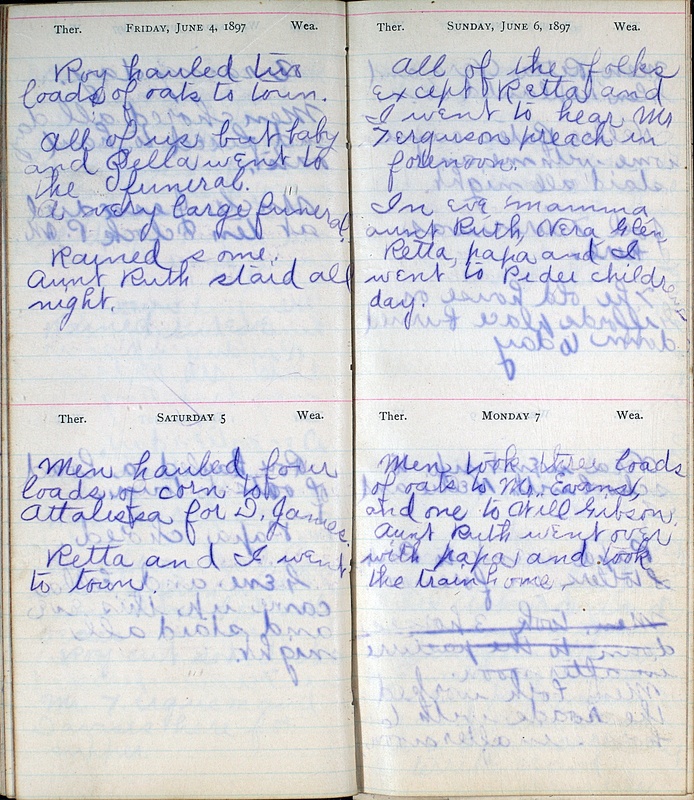 Ther. FRIDAY, JUNE 4, 1897 Wea.
Roy hauled two
loads of oats to town.
All of us but baby
and Zella went to
the funeral.
A very large funeral.
Rained some.
Aunt Ruth staid all
night.
Ther. SATURDAY 5 Wea.
Men hauled four
loads of corn to
Attalissa for D. James.
Retta and I went
to town.
Ther. SUNDAY, JUNE 6, 1897 Wea.
All of the folks
except Retta and
I went to hear Mr
Ferguson preach in
forenoon.
In eve mamma
aunt Ruth, Vera Glen
Retta, papa and I
went to Peder childrens
day.
Ther. MONDAY 7 Wea.
Men took three loads
of oats to Mr. Evans,
and one to Will Gibson.
Aunt Ruth went over
with papa and took
the train home.